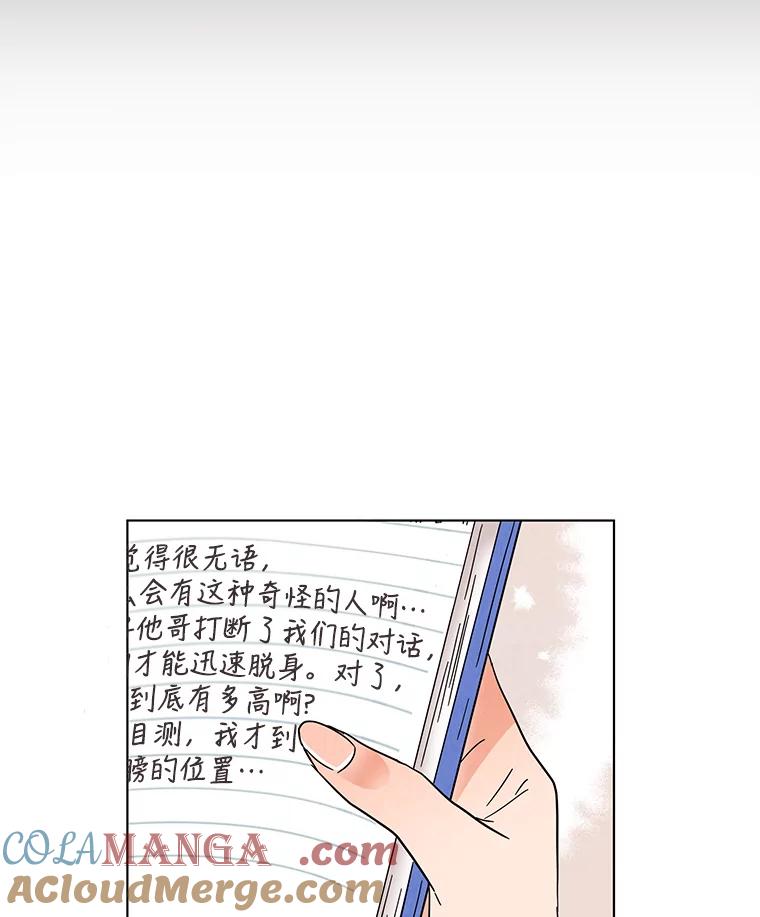 觉得很无语，
么会有这种奇怪的人啊…
他哥打断了我们的对话，
才能迅速脱身。对了，
到底有多高啊?
目测，我才到
膀的位置…
COLAMANGA.com
ACloudMerge.com